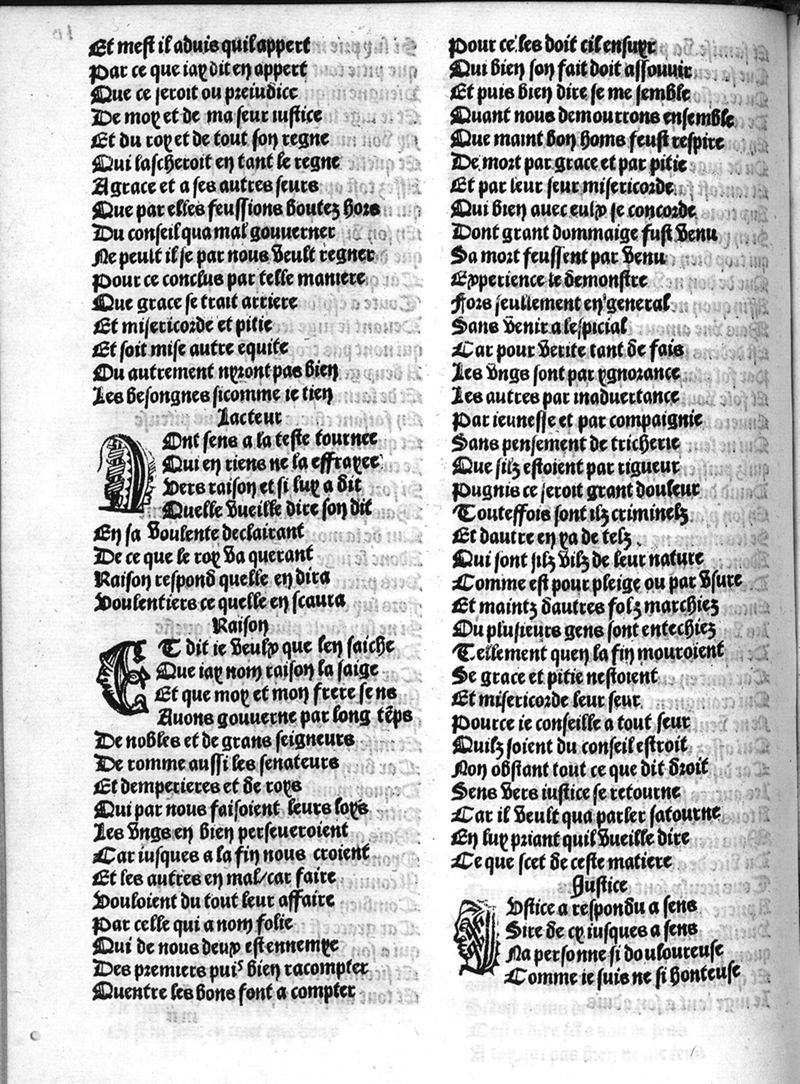 Et mest il aduis quil appert
Par ce que iay dit en appert
Que ce seroit ou preiudice
De moy et de ma seur iustice
Et du roy et de tout son regne
Qui lascheroit en tant le regne
A grace et a ses autres seurs
Que par elles feussions boutez hors
Du conseil qua mal gouuerner
Ne peult il se par nous veult regner
Pour ce conclus par telle maniere
Que grace se trait arriere
Et misericorde et pitie
Et soit mise autre equite
Ou autrement nyront pas bien
Les besongnes sicomme ie tien
Lacteur
Dont sens a la teste tournee
Qui en riens ne la effrayee
Vers raison et si luy a dit
Quelle vueille dire son dit
En sa voulente declairant
De ce que le roy va querant
Raison respond quelle en dira
Voulentiers ce quelle en scaura
Raison
Et dit ie veulx que len saiche
Que iay nom raison la saige
Et que moy et mon frere sens
Auons gouuerne par long tẽps
De nobles et de grans seigneurs
De romme aussi les senateurs
Et demperieres et de roys
Qui par nous faisoient leurs loys
Les vngs en bien perseueroient
Car iusques a la fin nous croient
Et les autres en mal/car faire
Vouloient du tout leur affaire
Par celle qui a nom folie
Qui de nous deux est ennemye
Des premiers puis bien racompter
Quentre les bons font a compter
Pour ce les doit cil ensuyr
Qui bien son fait doit assouuir
Et puis bien dire se me semble
Quant nous demourrons ensemble
Que maint bon homs feust respire
De mort par grace et par pitie
Et par leur seur misericorde
Qui bien auec eulx se concorde
Dont grant dommaige fust venu
Sa mort feussent par venu
Experience le demonstre
Fors seullement en general
Sans venir a lespicial
Car pour verite tant de fais
Les vngs sont par ygnorance
Les autres par inaduertance
Par ieunesse et par compaignie
Sans pensement de tricherie
Que silz estoient par rigueur
Pugnis ce seroit grant douleur
Touteffois sont ilz criminelz
Et dautre en ya de telz
Qui sont silz vilz de leur nature
Comme est pour pleige ou par vsure
Et maintz dautres folz marchiez
Ou plusieurs gens sont entechiez
Tellement quen la fin mouroient
Se grace et pitie nestoient
Et misericorde leur seur
Pource ie conseille a tout seur
Quilz soient du conseil estroit
Non obstant tout ce que dit droit
Sens vers iustice se retourne
Car il veult qua parler satourne
En luy priant quil vueille dire
Ce que scet de ceste matiere
Justice
Iustice a respondu a sens
Sire de cy iusques a sens
Na personne si douloureuse
Comme ie suis ne si honteuse